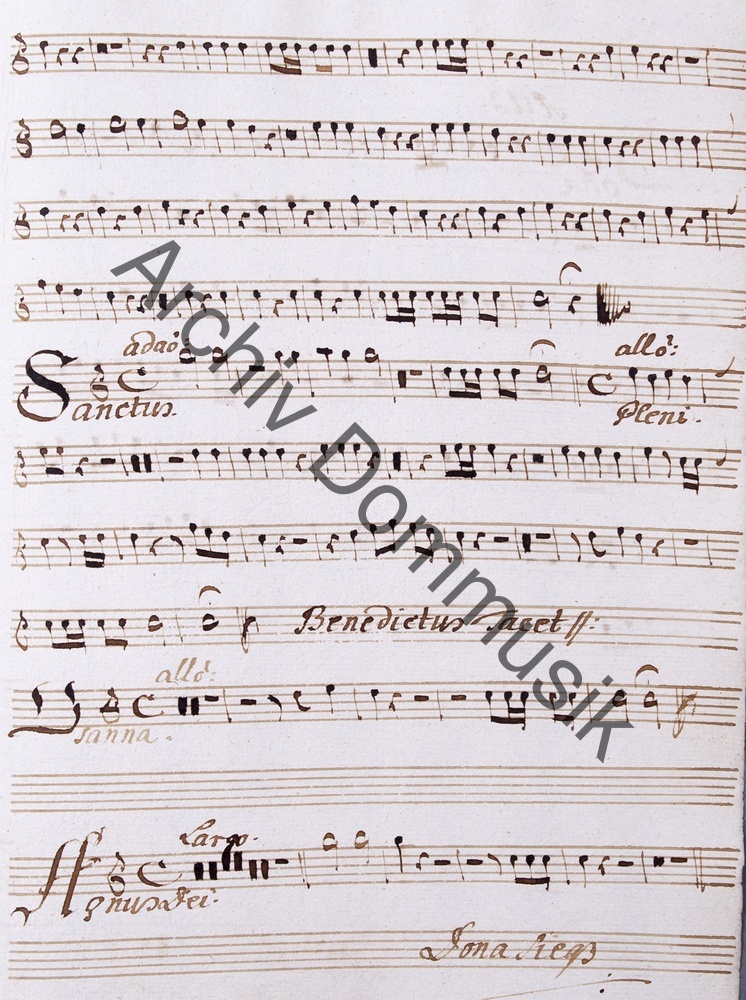 adaọ
Sanctus.
allọ:
Pleni.
Benedictus Tacet ſſ:
allọ:
Osanna.
Largo.
Agnus Dei.
Dona
Archiv Dommusik